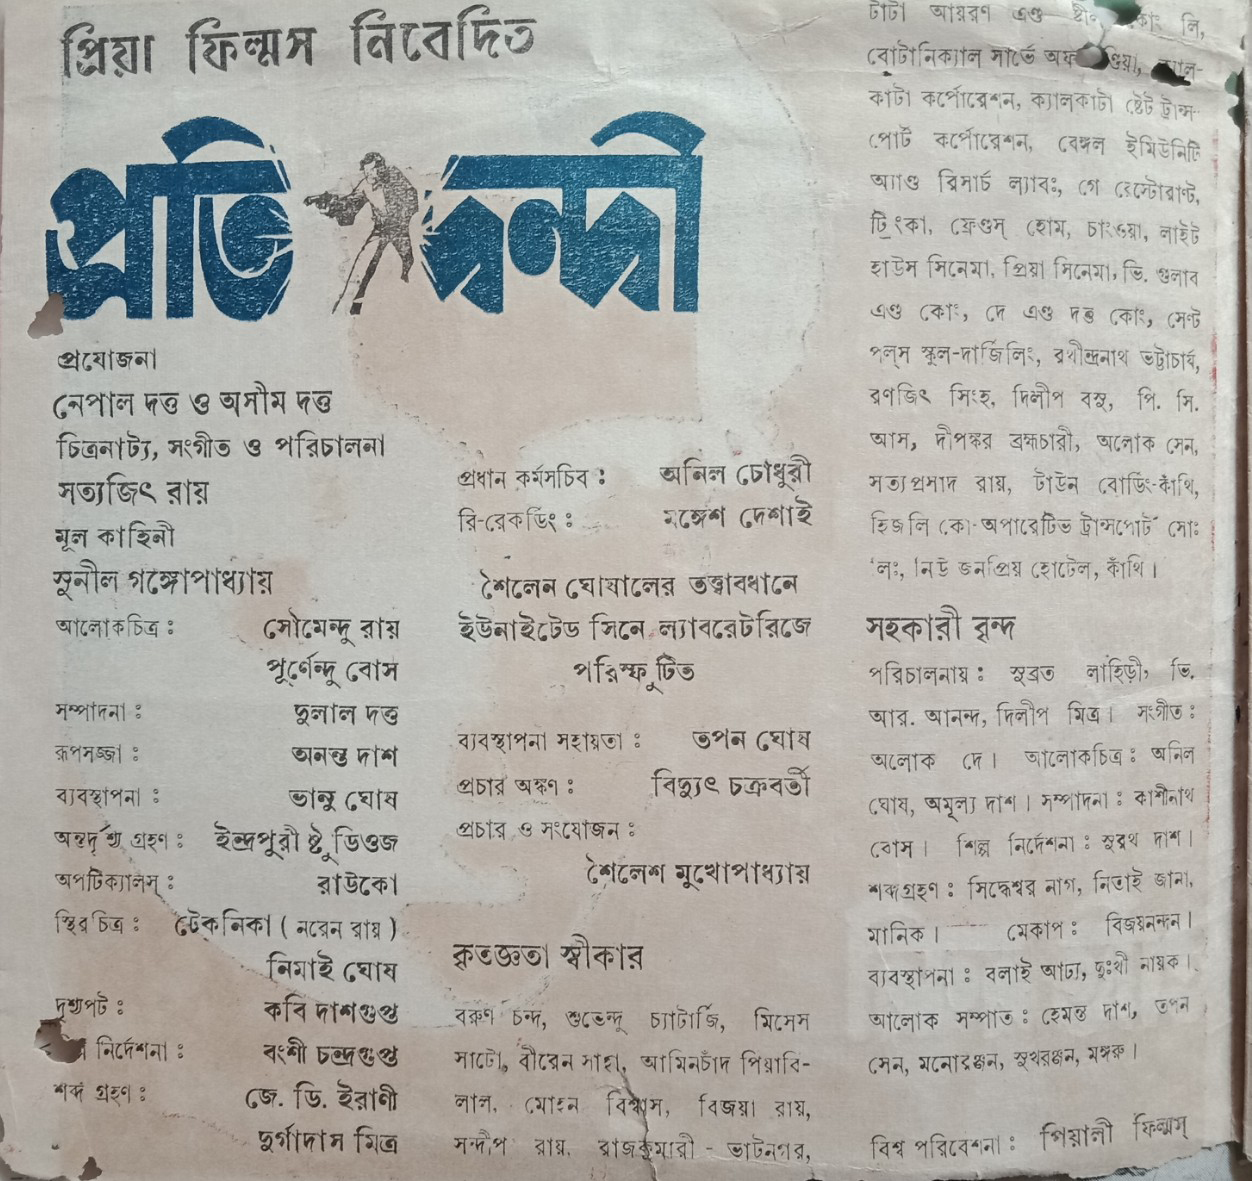 প্রিয়া ফিল্মস নিবেদিত
প্রতিদ্বন্দী
প্রযোজনা
নেপাল দত্ত ও অসীম দত্ত
চিত্রনাট্য, সংগীত ও পরিচালনা
সত্যজিৎ রায়
মূল কাহিনী
সুনীল গঙ্গোপাধ্যায়
আলোকচিত্র : সৌমেন্দু রায়
পূর্ণেন্দু বোস
সম্পাদনা : দুলাল দত্ত
রূপসজ্জা : অনন্ত দাশ
ব্যবস্থাপনা : ভানু ঘোষ
অন্তর্দৃশ্য গ্রহণ : ইন্দ্রপুরী ষ্টুডিওজ
অপটিক্যালস্ : রাউকো
স্থির চিত্র : টেকনিকা ( নরেন রায় )
নিমাই ঘোষ
দৃশ্যপট : কবি দাশগুপ্ত
নির্দেশনা : বংশী চন্দ্রগুপ্ত
শব্দ গ্রহণ : জে. ডি. ইরাণী
দুর্গাদাস মিত্র
প্রধান কর্মসচিব : অনিল চৌধুরী
রি-রেকর্ডিং : মঙ্গেশ দেশাই
শৈলেন ঘোষালের তত্ত্বাবধানে
ইউনাইটেড সিনে ল্যাবরেটরিজে
পরিস্ফুটিত
ব্যবস্থাপনা সহায়তা : তপন ঘোষ
প্রচার অঙ্কণ : বিদ্যুৎ চক্রবর্তী
প্রচার ও সংযোজন :
শৈলেশ মুখোপাধ্যায়
কৃতজ্ঞতা স্বীকার
বরুণ চন্দ, শুভেন্দু চ্যাটার্জি, মিসেস
সাটো, বীরেন সাহা, আমিনচাঁদ পিয়ারি-
লাল, মোহন বিশ্বাস, বিজয়া রায়,
সন্দীপ রায়, রাজকুমারী - ভাটনগর,
টাটা আয়রণ এণ্ড কোং লি,
বোটানিক্যাল সার্ভে অফ
কাটা কর্পোরেশন, ক্যালকাটা ষ্টেট ট্রান্স-
পোর্ট কর্পোরেশন, বেঙ্গল ইমিউনিটি
অ্যাণ্ড রিসার্চ ল্যাবঃ, গে রেস্টোরাণ্ট,
টি্ংকা, ফ্রেণ্ডস্ হোম, চাংওয়া, লাইট
হাউস সিনেমা, প্রিয়া সিনেমা, ভি. গুলাব
এণ্ড কোং, দে এণ্ড দত্ত কোং, সেণ্ট
পল্স স্কুল-দার্জিলিং, রথীন্দ্রনাথ ভট্টাচার্য,
রণজিৎ সিংহ, দিলীপ বসু, পি. সি.
আস, দীপঙ্কর ব্রহ্মচারী, অলোক সেন,
সত্যপ্রসাদ রায়, টাউন বোর্ডিং-কাঁথি,
হিজলি কো-অপারেটিভ ট্রান্সপোর্ট সোঃ
লিঃ, নিউ জনপ্রিয় হোটেল, কাঁথি।
সহকারী বৃন্দ
পরিচালনায় : সুব্রত লাহিড়ী, ভি.
আর. আনন্দ, দিলীপ মিত্র। সংগীত :
অলোক দে। আলোকচিত্র : অনিল
ঘোষ, অমূল্য দাশ। সম্পাদনা : কাশীনাথ
বোস। শিল্প নির্দেশনা : সুরথ দাশ।
শব্দগ্রহণ : সিদ্ধেশ্বর নাগ, নিতাই জানা,
মানিক। মেকাপ : বিজয়নন্দন।
ব্যবস্থাপনা : বলাই আঢ্য, দুঃখী নায়ক।
আলোক সম্পাত : হেমন্ত দাশ, তপন
সেন, মনোরঞ্জন, সুখরঞ্জন, মঙ্গরু।
বিশ্ব পরিবেশনা : পিয়ালী ফিল্মস্